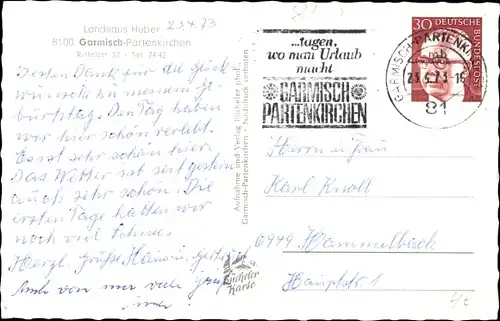 Landhaus Huber
8100 Garmisch-Partenkirchen
23.4.73
Besten Dank für die Glück-
wünsche zu meinem Ge-
burtstag. Den Tag haben
wir hier schön verlebt.
Es ist sehr schön hier.
Das Wetter ist seit gestern
auch sehr schön. Die
ersten Tage hatten wir
noch viel Schnee.
Herzl. Grüße
Auch von mir viele Grüße
Aufnahme und Verlag Escheler phot.
Garmisch-Partenkirchen - Nachdruck verboten
Karte
...tagen,
wo man Urlaub
macht
GARMISCH
PARTENKIRCHEN
30 DEUTSCHE
BUNDESPOST
GARMISCH-PARTENKI
23.4.73-18
81
Herrn u. Frau
Karl Knoll
6949 Hammelbach
Hauptstr. 1